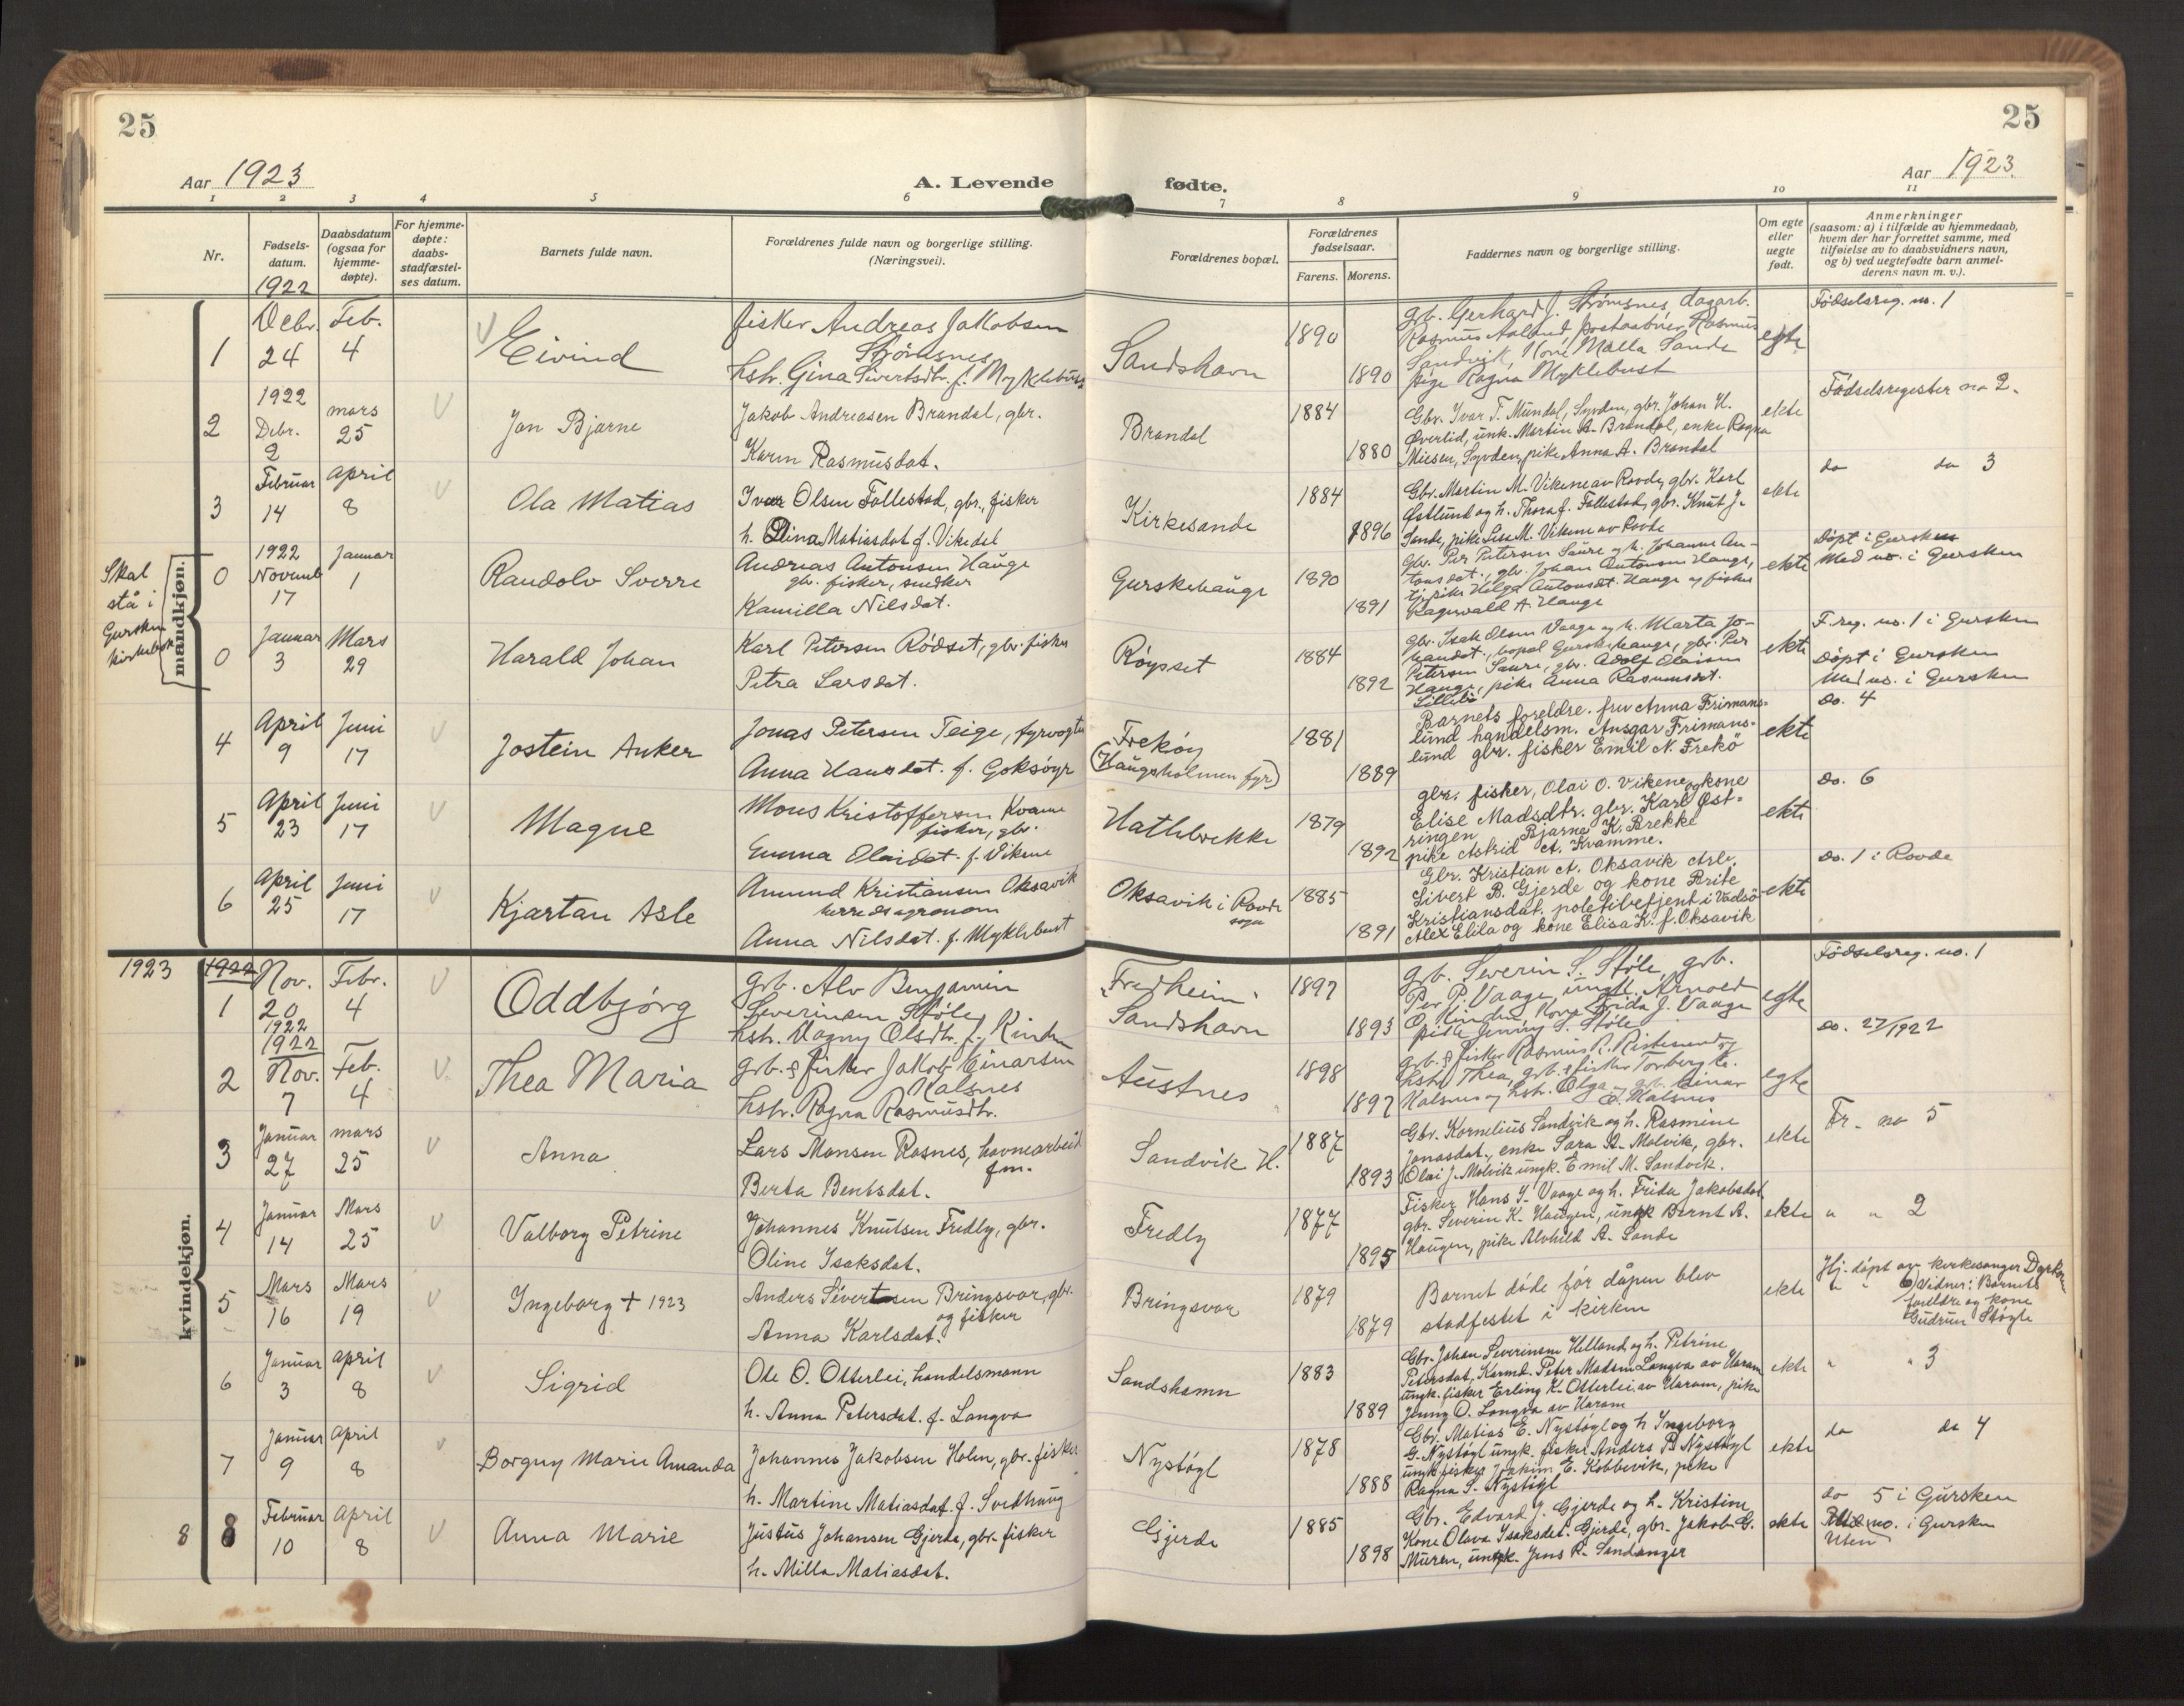 25
25
Aar 1923
A. Levende
fødte.
Aar 1923.
1 2 3 4 5 6 7 8 9 10 11
Nr.
Fødsels-
datum.
1922
Daabsdatum
(ogsaa for
hjemme-
døpte).
For hjemme-
døpte:
daabs-
stadfæstel-
ses datum.
Barnets fulde navn.
Forældrenes fulde navn og borgerlige stilling.
(Næringsvei).
Forældrenes bopæl.
Forældrenes
fødselsaar.
Farens. Morens.
Faddernes navn og borgerlige stilling.
Om egte
eller
uegte
født.
Anmerkninger
(saasom: a) i tilfælde av hjemmedaab,
hvem der har forrettet samme, med
tilføielse av to daabsvidners navn,
og b) ved uegtefødte barn anmel-
derens navn m. v.).
mandkjøn.
1
Debr.
24
Feb.
4
Eivind
fisker Andreas Jakobsen
Strømsnes
hstr. Gina Sivertsdtr. f. Myklebust
Sandshavn
1890
1890
grb. Gerhard J. Strømsnes, dagarb.
Rasmus Aaland, postaabner Rasmus
Sandvik, Kone Malla Sande
pige Ragna Myklebust
egte
Fødselsreg. no. 1
2
1922
Debr.
2
mars
25
Jon Bjarne
Jakob Andreasen Brandal, gbr.
Karen Rasmusdat.
Brandal
1884
1880
Gbr. Ivar T. Mundal, Syvden, gbr. Johan H.
Øverlid, unk. Martin A. Brandal, enke Ragna
Miesen, Syvden, pike Anna A. Brandal
ekte
Fødselsregister no 2.
3
Februar
14
April
8
Ola Matias
Ivar Olsen Follestad, gbr., fisker
h. Elina Matiasdat f. Vikedal
Kirkesande
1884
1896
Gbr. Martin M. Vikene av Rovde, gbr. Karl
Østlund og h. Thora f. Follestad, gbr. Knut J.
Sande, pike Lisa M. Vikene av Rovde
ekte
do do 3
Skal
stå i
Gursken
kirkebok
0
1922
Novemb
17
Januar
1
Randolv Sverre
Andreas Antonsen Hauge
gbr. fisker, snedker
Kamilla Nilsdat.
Gurskehauge
1890
1891
Gbr. Per Petersen Saure og h. Johanne An-
tonsdat., gbr. Johan Antonsen Hauge,
tj. pike Helga Antonsdt. Hauge og fisker
Ragnvald A. Hauge
ekte
Døpt i Gursken
Med no. i Gursken
0
Januar
3
Mars
29
Harald Johan
Karl Petersen Rødset, gbr. fisker
Petra Larsdat.
Røysset
1884
1892
Gbr. Isak Olsen Vaage og h. Marta Jo-
handat., bopel Gurskehauge, gbr. Per
Petersen Saure, gbr. Adolf Olaisen
Hauge, pike Anna Rasmusdt.
Lillebø
ekte
F. reg. no. 1 i Gursken
Døpt i Gursken
Med no. i Gursken
4
April
9
Juni
17
Jostein Anker
Jonas Petersen Teige, fyrvogter
Anna Hansdat. f. Goksøyr
Frekøy
(Haugsholmen fyr)
1881
1889
Barnets foreldre. fru Anna Frimans-
lund handelsm. Ansgar Frimans-
lund gbr. fisker Emil N. Frekö
ekte
do. 4
5
April
23
Juni
17
Magne
Mons Kristoffersen Kvame
fisker, gbr.
Emma Olaidat. f. Vikene
Hatlebrekke
1879
1892
gbr. fisker, Olai O. Vikene og kone
Elise Madsdtr. gbr. Karl Øst-
ringen Bjarne K. Brekke
pike Astrid A. Kvamme.
ekte
do. 6
6
April
25
Juni
17
Kjartan Asle
Amund Kristiansen Oksavik
herredsagronom
Anna Nilsdat. f. Myklebust
Oksavik i Rovde
sogn
1885
1891
Gbr. Kristian A. Oksavik Asle,
Sivert B. Gjerde og kone Brite
Kristiansdat. politibetjent i Vadsö
Alex Elila og kone Elisa K. f. Oksavik
ekte
do. 1 i Rovde
kvindekjøn.
1923
1922
1
Nov.
20
1922
Febr.
4
Oddbjörg
grb. Alv Benjamin
Severinsen Støle
hstr. Vagny Olsdtr. f. Kinden
"Fredheim"
Sandshavn
1897
1893
grb. Severin S. Støle, grb.
Per P. Vaage, ungk. Arnold
O. Kinden, Kone Frida J. Vaage
pike Jenny S. Støle
egte
Fødselsreg. no. 1
2
1922
Nov.
7
Feb.
4
Thea Maria
grb. & fisker Jakob Einarsen
Halsnes
hstr. Ragna Rasmusdtr.
Austnes
1898
1897
grb. & fisker Rasmus R. Ristesund og
hstr. Thea, grb. & fisker Torberg E.
Halsnes og hstr. Olga og grb. Einar
E. Halsnes
egte
do. 27/1922
3
Januar
27
mars
25
Anna
Lars Monsen Rosnes, havnearbeid.
fm.
Berta Bentsdat.
Sandvik H.
1887
1893
Gbr. Kornelius Sandvik og h. Rasmine
Jonasdat., enke Sara A. Molvik, gbr.
Olai J. Molvik ungk. Emil M. Sandvik.
ekte
Fr. no 5
4
Januar
14
Mars
25
Valborg Petrine
Johannes Knutsen Fredly, gbr.
Oline Isaksdat.
Fredly
1877
1895
Fisker Hans J. Vaage og h. Frida Jakobsdat
gbr. Severin K. Haugen, ungk Bernt A.
Haugen, pike Alvhild A. Sande
ekte
" " 2
5
Mars
16
Mars
19
Ingeborg + 1923
Anders Sivertsen Bringsvor, gbr.
og fisker
Anna Karlsdat.
Bringsvor
1879
1879
Barnet döde för dåpen blev
stadfestet i kirken
ekte
Hj. døpt av kirkesanger Dyrkorn
" " 6) Vidner: Barnets
foreldre og kone
Gudrun Støyle
6
Januar
3
April
8
Sigrid
Ole O. Otterlei, handelsmann
h. Anna Petersdat. f. Longva
Sandshamn
1883
1889
Gbr. Johan Severinsen Helland og h. Petrine
Petersdat, Karmd. Peter Madsen Longva av Haram
ungk. fisker Erling K. Otterlei av Haram, pike
Jenny O. Longva av Haram
ekte
" " 3
7
Januar
9
April
8
Borguy Marie Amanda
Johannes Jakobsen Holm, gbr. fisker
h. Martine Matiasdat f. Svedhaug
Nystøyl
1878
1888
Gbr. Matias E. Nystøyl og h Ingeborg
G. Nystøyl ungk. fisker Anders P. Nystøyl
ungk. fisker Joakim E. Kobbevik, pike
Ragna S. Nystøyl
ekte
do do 4
8
8
Februar
10
April
8
Anna Marie
Justus Johansen Gjerde, gbr. fisker
h. Milla Matiasdat.
Gjerde
1885
1898
Gbr. Edvard J. Gjerde og h. Kristine,
Kone Olava Isaksdat. Gjerde, gbr. Jakob G.
Muren, ungk. Jens R. Sandanger
ekte
do 5 i Gursken
no. i Gursken
Uten